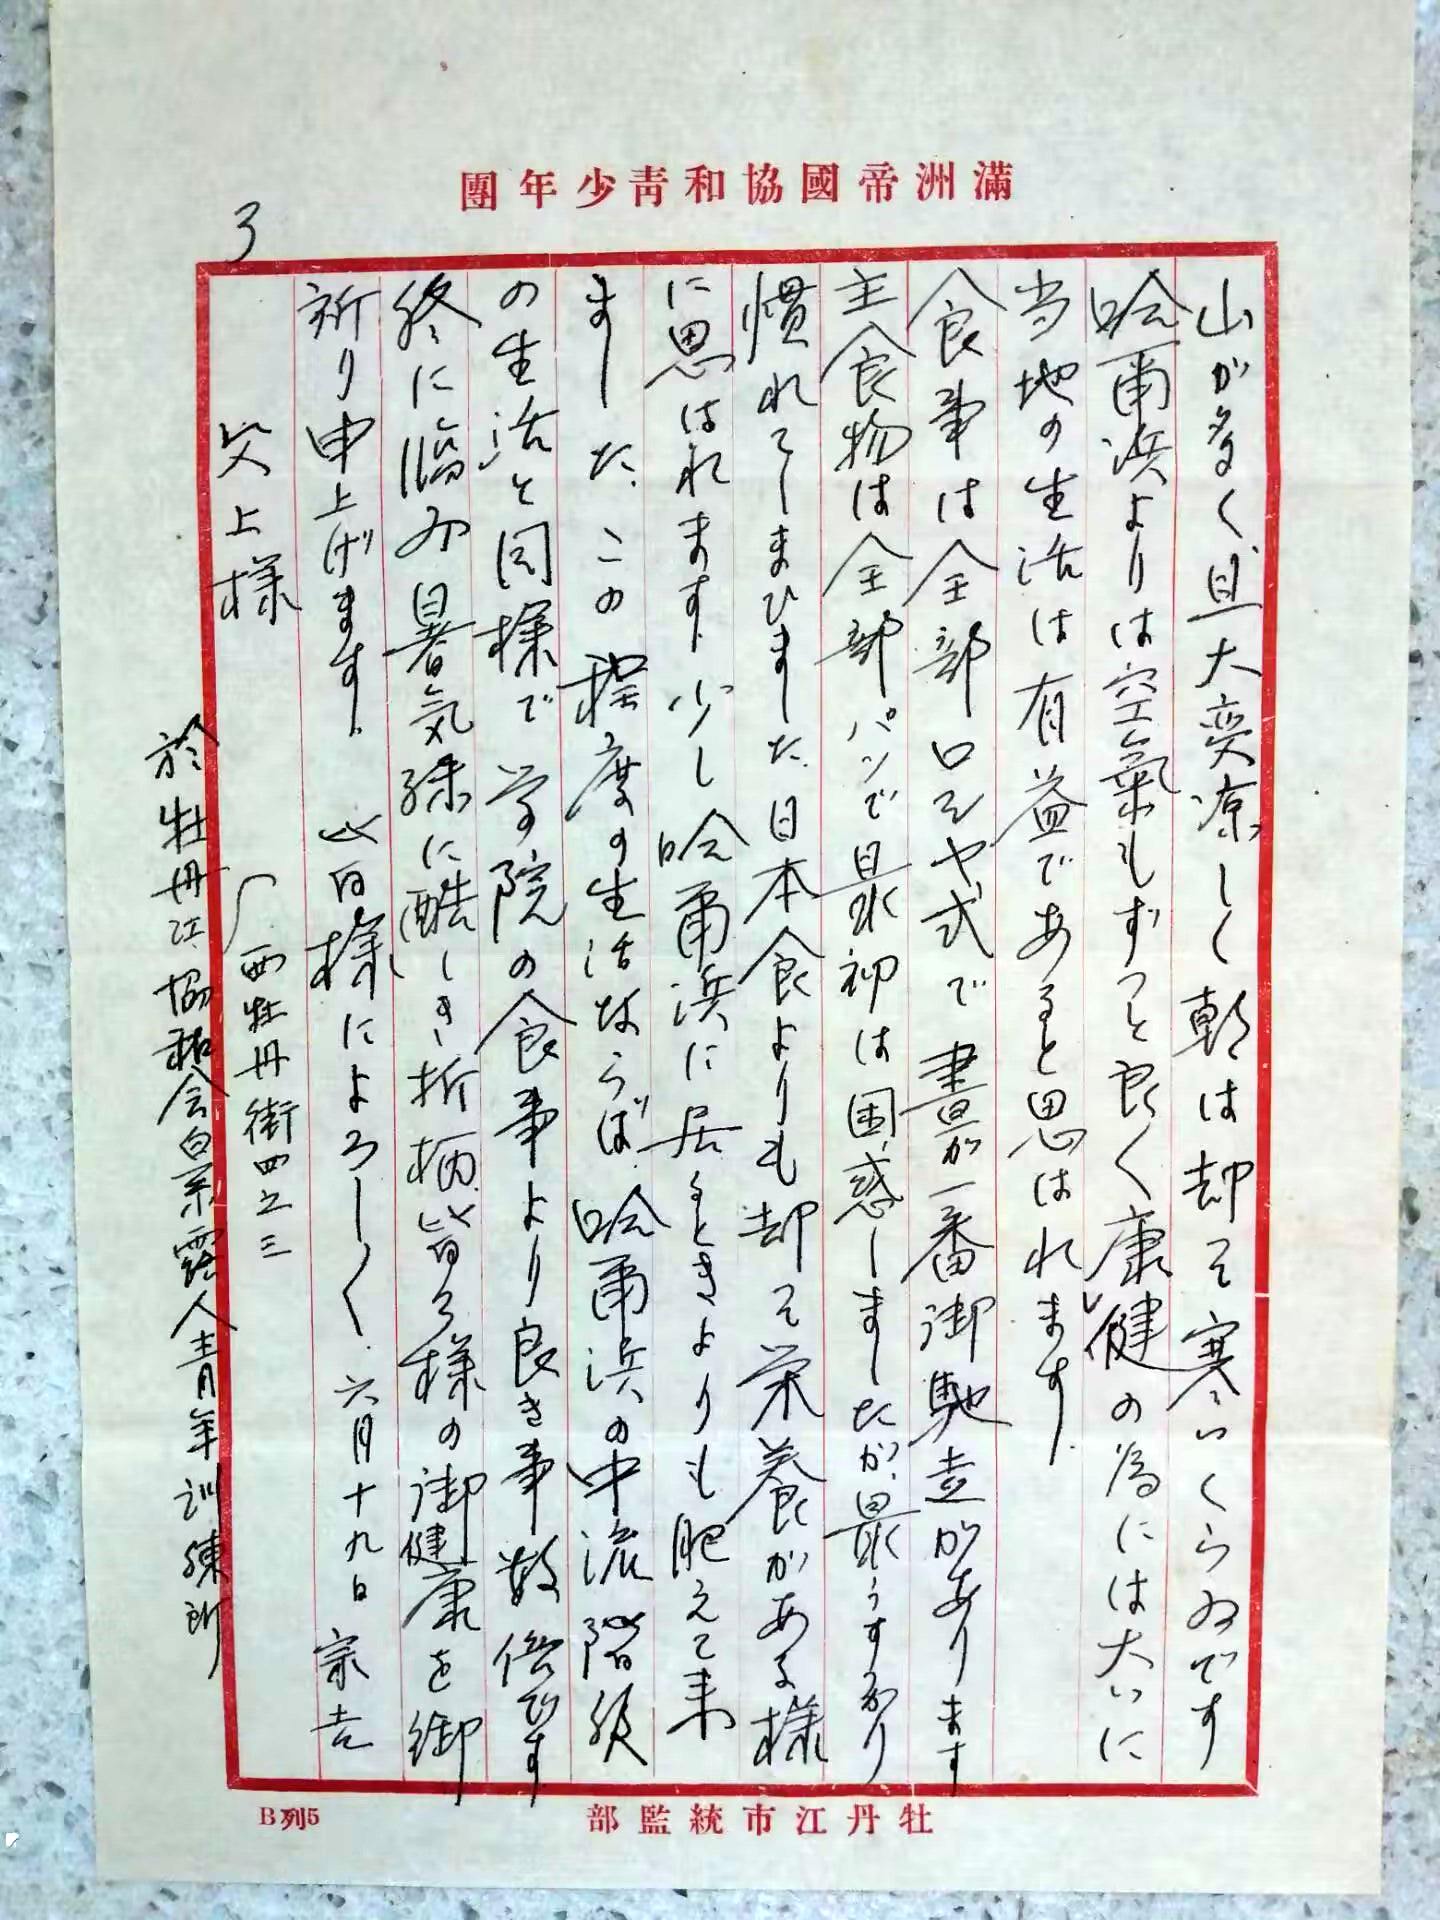 滿洲帝國協和青少年團
3
山が多く且大変凉しく朝は却って寒いくらゐです
哈爾浜よりは空氣もずっと良く康健の為には大いに
当地の生活は有益であると思はれます
食事は全部ロシヤ式で晝が一番御馳走があります
主食物は全部パンで最初は困惑しましたが最うすっかり
慣れてしまひました 日本食よりも却って栄養がある様
に思はれます 少し哈爾浜に居るときよりも肥えて来
ました この程度の生活ならば 哈爾浜の中流階級
の生活と同様で 学院の食事より良き事数倍です
終に臨み暑気殊に酷しき折柄皆々様の御健康を御
祈り申上げます 皆様によろしく 六月十九日 宗吉
父上様
西牡丹街四之三
於牡丹江協和会白系露人青年訓練所
牡丹江市統監部
B列5